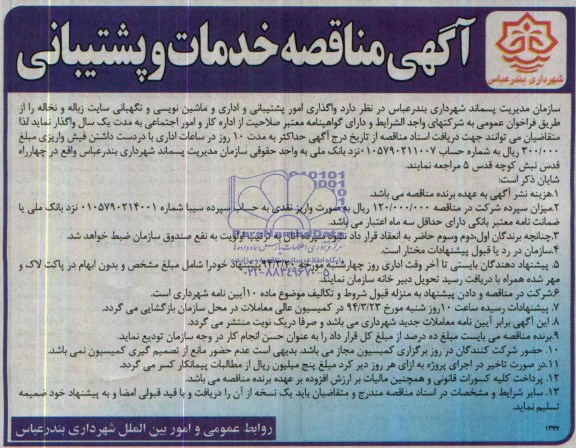 آگهی مناقصه خدمات و پشتیبانی
شهرداری بندرعباس
سازمان مدیریت پسماند شهرداری بندرعباس در نظر دارد واگذاری امور پشتیبانی و اداری و ماشین نویسی و نگهبانی سایت زباله و نخاله را از
طریق فراخوان عمومی به شرکتهای واجد الشرایط و دارای گواهینامه معتبر صلاحیت از اداره کار و امور اجتماعی به مدت یک سال واگذار نماید لذا
متقاضیان می توانند جهت دریافت اسناد مناقصه از تاریخ درج آگهی حداکثر به مدت ۱۰ روز در ساعات اداری با دردست داشتن فیش واریزی مبلغ
۳۰۰/۰۰۰ ریال به شماره حساب ۰۱۰۵۷۹۰۲۱۱۰۰۷ نزد بانک ملی به واحد حقوقی سازمان مدیریت پسماند شهرداری بندرعباس واقع در چهارراه
قدس نبش کوچه قدس ۵ مراجعه نمایند.
شایان ذکر است:
۱.هزینه نشر آگهی به عهده برنده مناقصه می باشد.
۲.میزان سپرده شرکت در مناقصه ۱۲۰/۰۰۰/۰۰۰ ریال به صورت واریز نقدی به حساب سپرده سیبا شماره ۰۱۰۵۷۹۰۲۱۴۰۰۱ نزد بانک ملی یا
ضمانت نامه معتبر بانکی دارای حداقل سه ماه اعتبار می باشد.
۳.چنانچه برندگان اول،دوم وسوم حاضر به انعقاد قرار داد نشوند سپرده آنان به ترتیب اولویت به نفع صندوق سازمان ضبط خواهد شد.
۴.سازمان در رد یا قبول پیشنهادات مختار است.
۵. پیشنهاد دهندگان بایستی تا آخر وقت اداری روز چهارشنبه مورخه پیشنهاد خودرا شامل مبلغ مشخص و بدون ابهام در پاکت لاک و
مهر شده همراه با دریافت رسید تحویل دبیر خانه سازمان نمایند.
۶شرکت در مناقصه و دادن پیشنهاد به منزله قبول شروط و تکالیف موضوع ماده ۱۰آیین نامه شهرداری است.
۷. پیشنهادات رسیده ساعت ۱۰روز شنبه مورخ ۹۴/۳/۲۳ در کمیسیون عالی معاملات در محل سازمان بازگشایی می گردد.
۸. این آگهی برابر آیین نامه معاملات جدید شهرداری می باشد و صرفا دریک نوبت منتشر می گردد.
۹.برنده مناقصه می بایست مبلغ ده درصد از مبلغ کل قرار داد را به عنوان حسن انجام کار در وجه سازمان تودیع نماید.
۱۰. حضور شرکت کنندگان در روز برگزاری کمیسیون مجاز می باشد. بدیهی است عدم حضور مانع از تصمیم گیری کمیسیون نمی باشد.
۱۱.در صورت تاخیر در اجرای پروژه به ازای هر روز دیر کرد مبلغ پنج میلیون ریال از مطالبات پیمانکار کسر می گردد.
۱۲. پرداخت کلیه کسورات قانونی و همچنین مالیات بر ارزش افزوده بر عهده برنده مناقصه می باشد.
۱۳. سایر شرایط و مشخصات در اسناد مناقصه مندرج و متقاضیان باید یک نسخه از آن را دریافت و با قید قبولی امضا و به پیشنهاد خود ضمیمه
تسلیم نماید.
۱۳۷۷
روابط عمومی و امور بین الملل شهرداری بندرعباس
۰۲۱-۸۸۳۴۹۶۷۰-۵